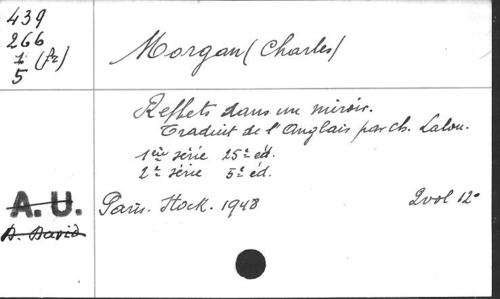 439
266
1 (fr)
5
Morgan (Charles)
Reflets dans un miroir.
Traduit de l'Anglais par Ch. Lalou.
1ère série 25e éd.
2e série 5e éd.
A. U.
D. David
Paris. Stock. 1948 2 vol 12°